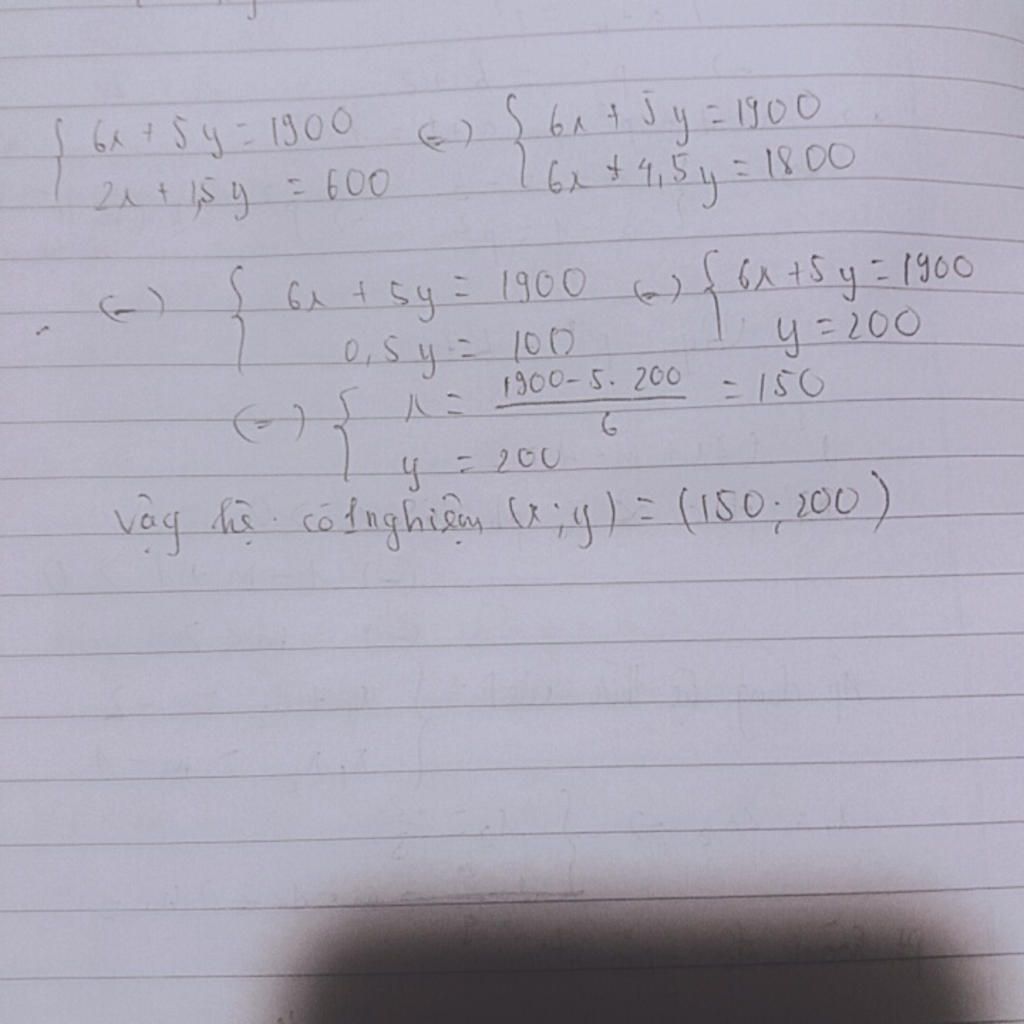 { 6x + 5y = 1900 (=) { 6x + 5y = 1900
2x + 1,5y = 600 6x + 4,5y = 1800
(=) { 6x + 5y = 1900 (=) { 6x + 5y = 1900
0,5y = 100 y = 200
(=) { x = (1900 - 5. 200)/6 = 150
y = 200
Vậy hệ có 1 nghiệm (x ; y) = (150 ; 200)